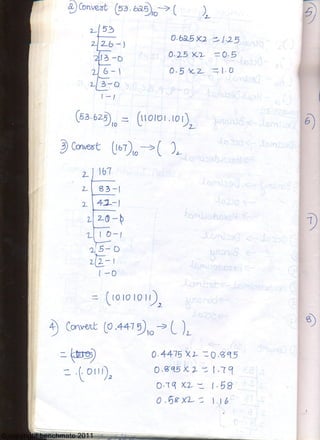 2) Convert (53.625)10 → ( )2
2 | 53
2 | 26 - 1
2 | 13 - 0
2 | 6 - 1
2 | 3 - 0
1 - 1
0.625 x 2 = 1.25
0.25 x 2 = 0.5
0.5 x 2 = 1.0
(53.625)10 = (110101.101)2
3) Convert (167)10 → ( )2
2 | 167
2 | 83 - 1
2 | 42 - 1
2 | 20 - 0
2 | 10 - 0
2 | 5 - 0
2 | 2 - 1
1 - 0
= (10101011)2
4) Convert (0.4475)10 → ( )2
= (.0111)2
0.4475 x 2 = 0.895
0.895 x 2 = 1.79
0.79 x 2 = 1.58
0.58 x 2 = 1.16
5)
6)
7)
8)
benchmate 2011